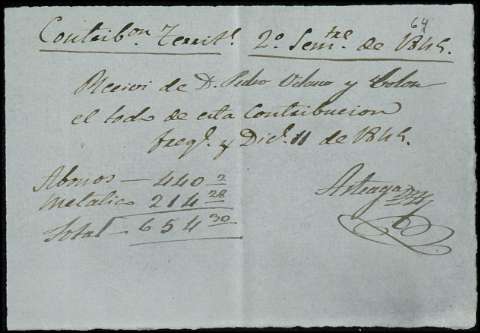 64
Contribon. Territl. 2o. Semtre de 1845.
Recivi de D. Pedro Velasco y Colon
el todo de esta Contribucion
y Dice. 11 de 1845.
Abonos — 440 2
Metalico 214 28
Total — 654 30
Arteaga